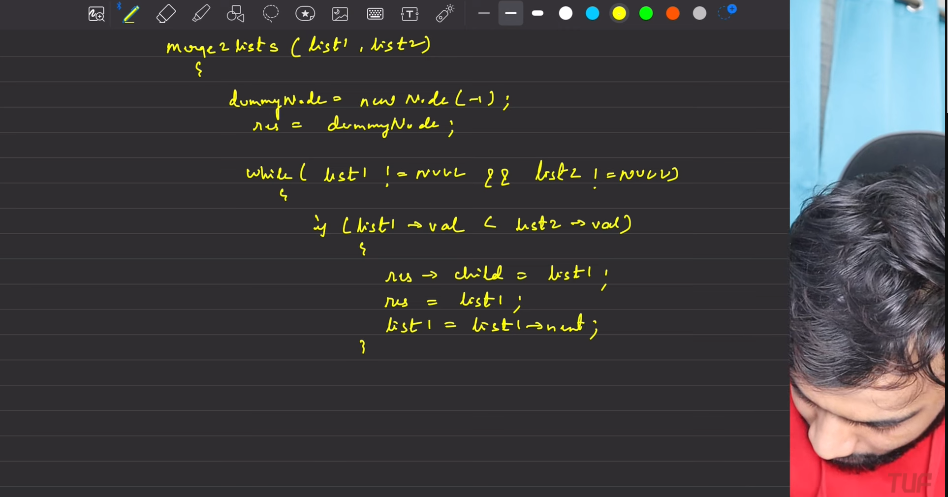 merge2lists (list1, list2)
{
dummyNode = new Node(-1);
res = dummyNode;
while( list1 != NULL && list2 != NULL)
{
if (list1 → val < list2 → val)
{
res → child = list1;
res = list1;
list1 = list1 → next;
}
TUF